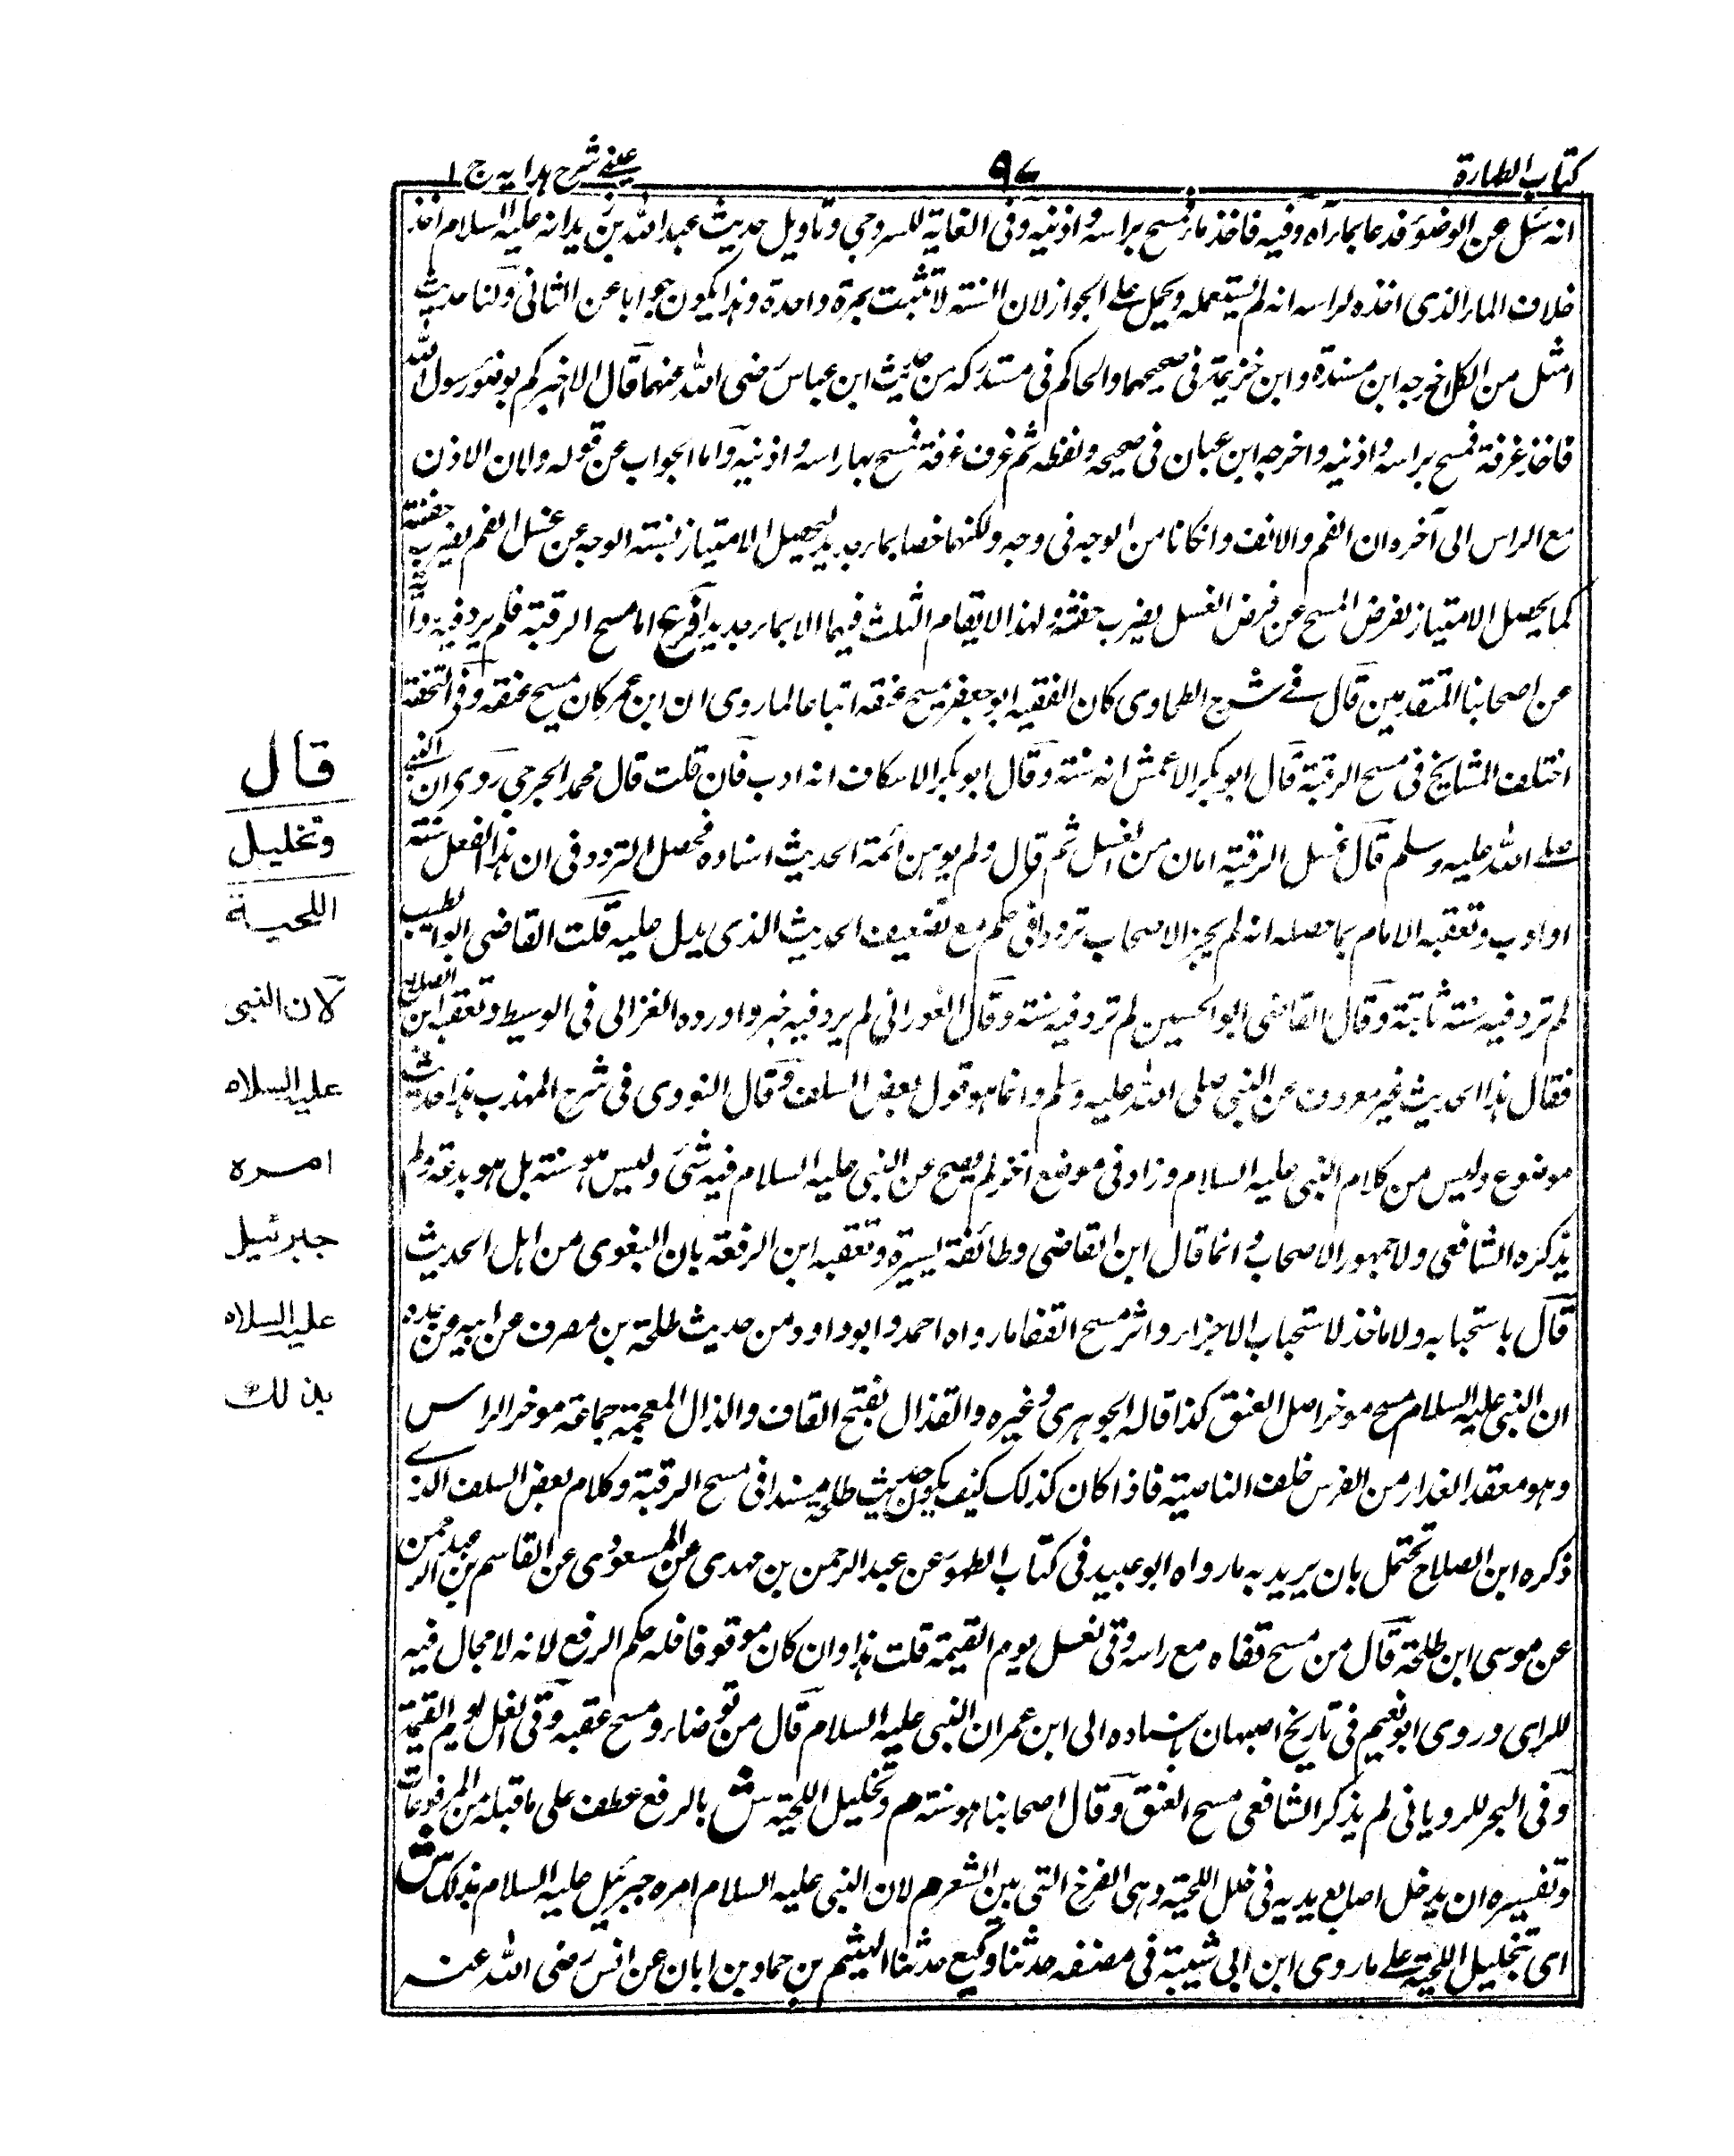 كتاب الطهارة
٩٧
عيني شرح هدايه ج ١
انه سئل عن الوضوء فدعا بماء آه وفيه فاخذ ماء فمسح براسه واذنيه وفى الغاية للسروجى وتاويل حديث عبد الله بن زيد انه عليه السلام اخذ
خلاف الماء الذى اخذه لراسه انه لم يستعمله ويحمل على الجواز لان السنته لا تثبت بمرة واحدة وهذا يكون جوابا عن الثانى ولنا حديث
امثل من الكل اخرجه ابن مندة وابن خزيمة فى صحيحهما والحاكم فى مستدركه من حديث ابن عباس رضى الله عنهما قال الا اخبركم بوضوء رسول الله
فاخذ غرفة فمسح براسه واذنيه واخرجه ابن حبان فى صحيحه ولفظه ثم غرف غرفة فمسح بها راسه واذنيه واما الجواب عن قوله ولان الاذن
مع الراس الى آخره ان الفم والانف وانكانا من الوجه فى وجه ولكنهما خصا بماء جديد ليحصل الامتياز لسنته الوجه عن غسل الفم بضرب حفنته
كما يحصل الامتياز لفرض المسح عن فرض الغسل بضرب حفنته ولهذا لا يقام الثلث فيهما الا بماء جديد فرع اما مسح الرقبة فلم يرد فيه
عن اصحابنا المتقدمين قال فى شرح الطحاوى كان الفقيه ابو جعفر يمسح عنقه اتباعا لما روى ان ابن عمر كان يمسح عنقه وفى التحفة
اختلف المشايخ فى مسح الرقبة قال ابو بكر الاعمش انه سنته وقال ابو بكر الاسكاف انه ادب فان قلت قال محمد الجرجى روى ان النبى
صلى الله عليه وسلم قال غسل الرقبة امان من الغل ثم قال ولم يوهن ائمة الحديث اسناده فحصل التردد فى ان هذا الفعل سنته
او ادب وتعقبه الامام بما حصله انه لم يجز الاصحاب تردد فى حكم مع تضعيف الحديث الذى يدل عليه قلت القاضى ابو الطيب
لم ترد فيه سنته ثابتة وقال القاضى ابو الحسين لم ترد فيه سنته وقال الفورانى لم يرد فيه خبر واورده الغزالى فى الوسيط وتعقبه ابن الصلاح
فقال هذا الحديث غير معروف عن النبى صلى الله عليه وسلم وانما هو قول بعض السلف وقال النووى فى شرح المهذب هذا حديث
موضوع وليس من كلام النبى عليه السلام وزاد فى موضع اخر لم يصح عن النبى عليه السلام فيه شئ وليس هو سنته بل هو بدعة ولم
يذكره الشافعى ولا جمهور الاصحاب وانما قال ابن القاضى وطائفة يسيرة وتعقبه ابن الرفعة بان البغوى من اهل الحديث
قال باستحبابه ولا ماخذ لاستحبابه الا خبر او اثر مسح القفا ما رواه احمد وابو داود من حديث طلحة بن مصرف عن ابيه عن جده
ان النبى عليه السلام مسح موخر اصل العنق كذا قاله الجوهرى وغيره والقذال بفتح القاف والذال المعجمة جماعة موخر الراس
وهو معقد العذار من الفرس خلف الناصية فاذا كان كذلك كيف يكون حديث طلحة مسندا فى مسح الرقبة وكلام بعض السلف الذى
ذكره ابن الصلاح تحتمل بان يريد به ما رواه ابو عبيد فى كتاب الطهور عن عبد الرحمن بن مهدى عن المسعودى عن القاسم بن عبد الرحمن
عن موسى ابن طلحة قال من مسح قفاه مع راسه وقى الغل يوم القيمة قلت هذا وان كان موقوفا فله حكم الرفع لانه لا مجال فيه
للراى وروى ابو نعيم فى تاريخ اصبهان باسناده الى ابن عمر ان النبى عليه السلام قال من توضا ومسح عنقه وقى الغل يوم القيمة
وفى البحر للرويانى لم يذكر الشافعى مسح العنق وقال اصحابنا هو سنته م وتخليل اللحية ش بالرفع عطف على ما قبله من المرفوعات
وتفسيره ان يدخل اصابع يديه فى خلل اللحية وهى الفرخ التى بين الشعر م لان النبى عليه السلام امره جبرئيل عليه السلام بذلك ش
اى بتخليل اللحية على ما روى ابن ابى شيبة فى مصنفه حدثنا وكيع حدثنا الهيثم بن حماد بن ابان عن انس رضى الله عنه
قال
وتخليل
اللحية
لان النبى
عليه السلام
امره
جبرئيل
عليه السلام
بذلك